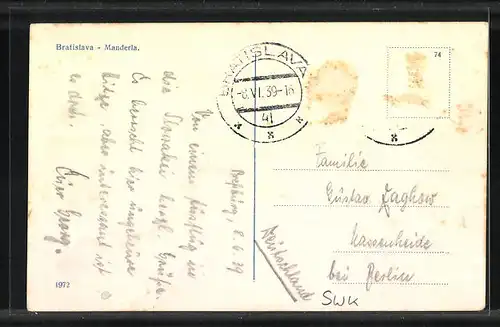 Bratislava - Manderla.
BRATISLAVA
-8.VI.39-16
41
74
Preßburg, 8.6.39
Von einem Ausflug in
die Slowakei herzl. Grüße.
Es herrscht hier ungeheure
Hitze, aber interessant ist
es doch.
Euer Georg.
Familie
Gustav
bei Berlin
Deutschland
SWK
1972